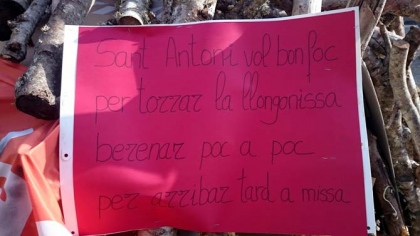 Sant Antoni vol bon foc
per torrar la llongonissa
berenar poc a poc
per arribar tard a missa